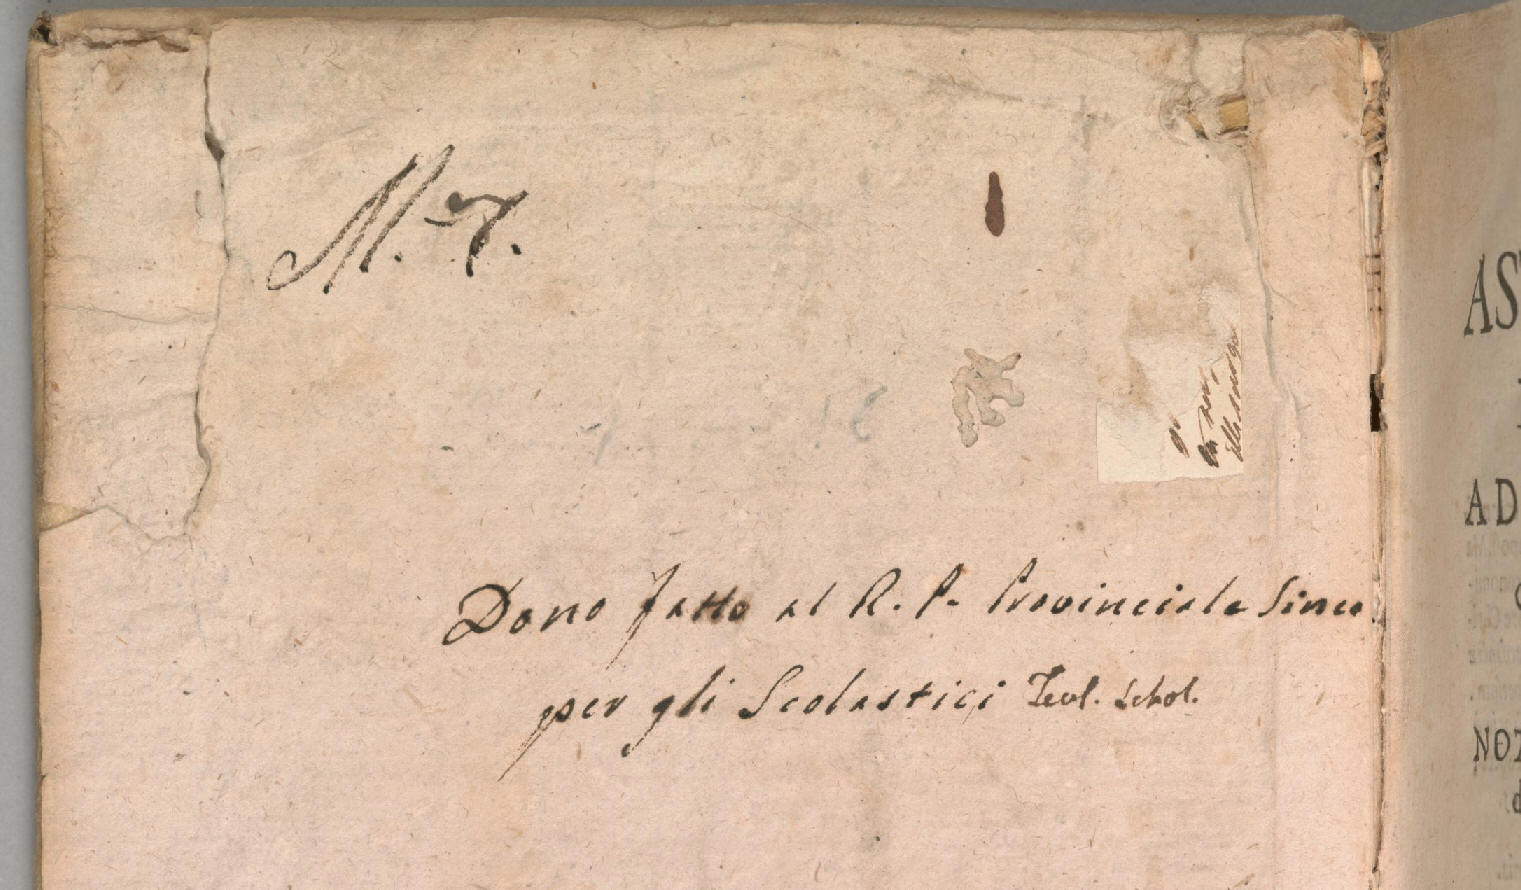 M. 7.
Dono fatto al R. P. Provinciale Sineo
per gli Scolastici Teol. Schol.
AS
AD
NOZ